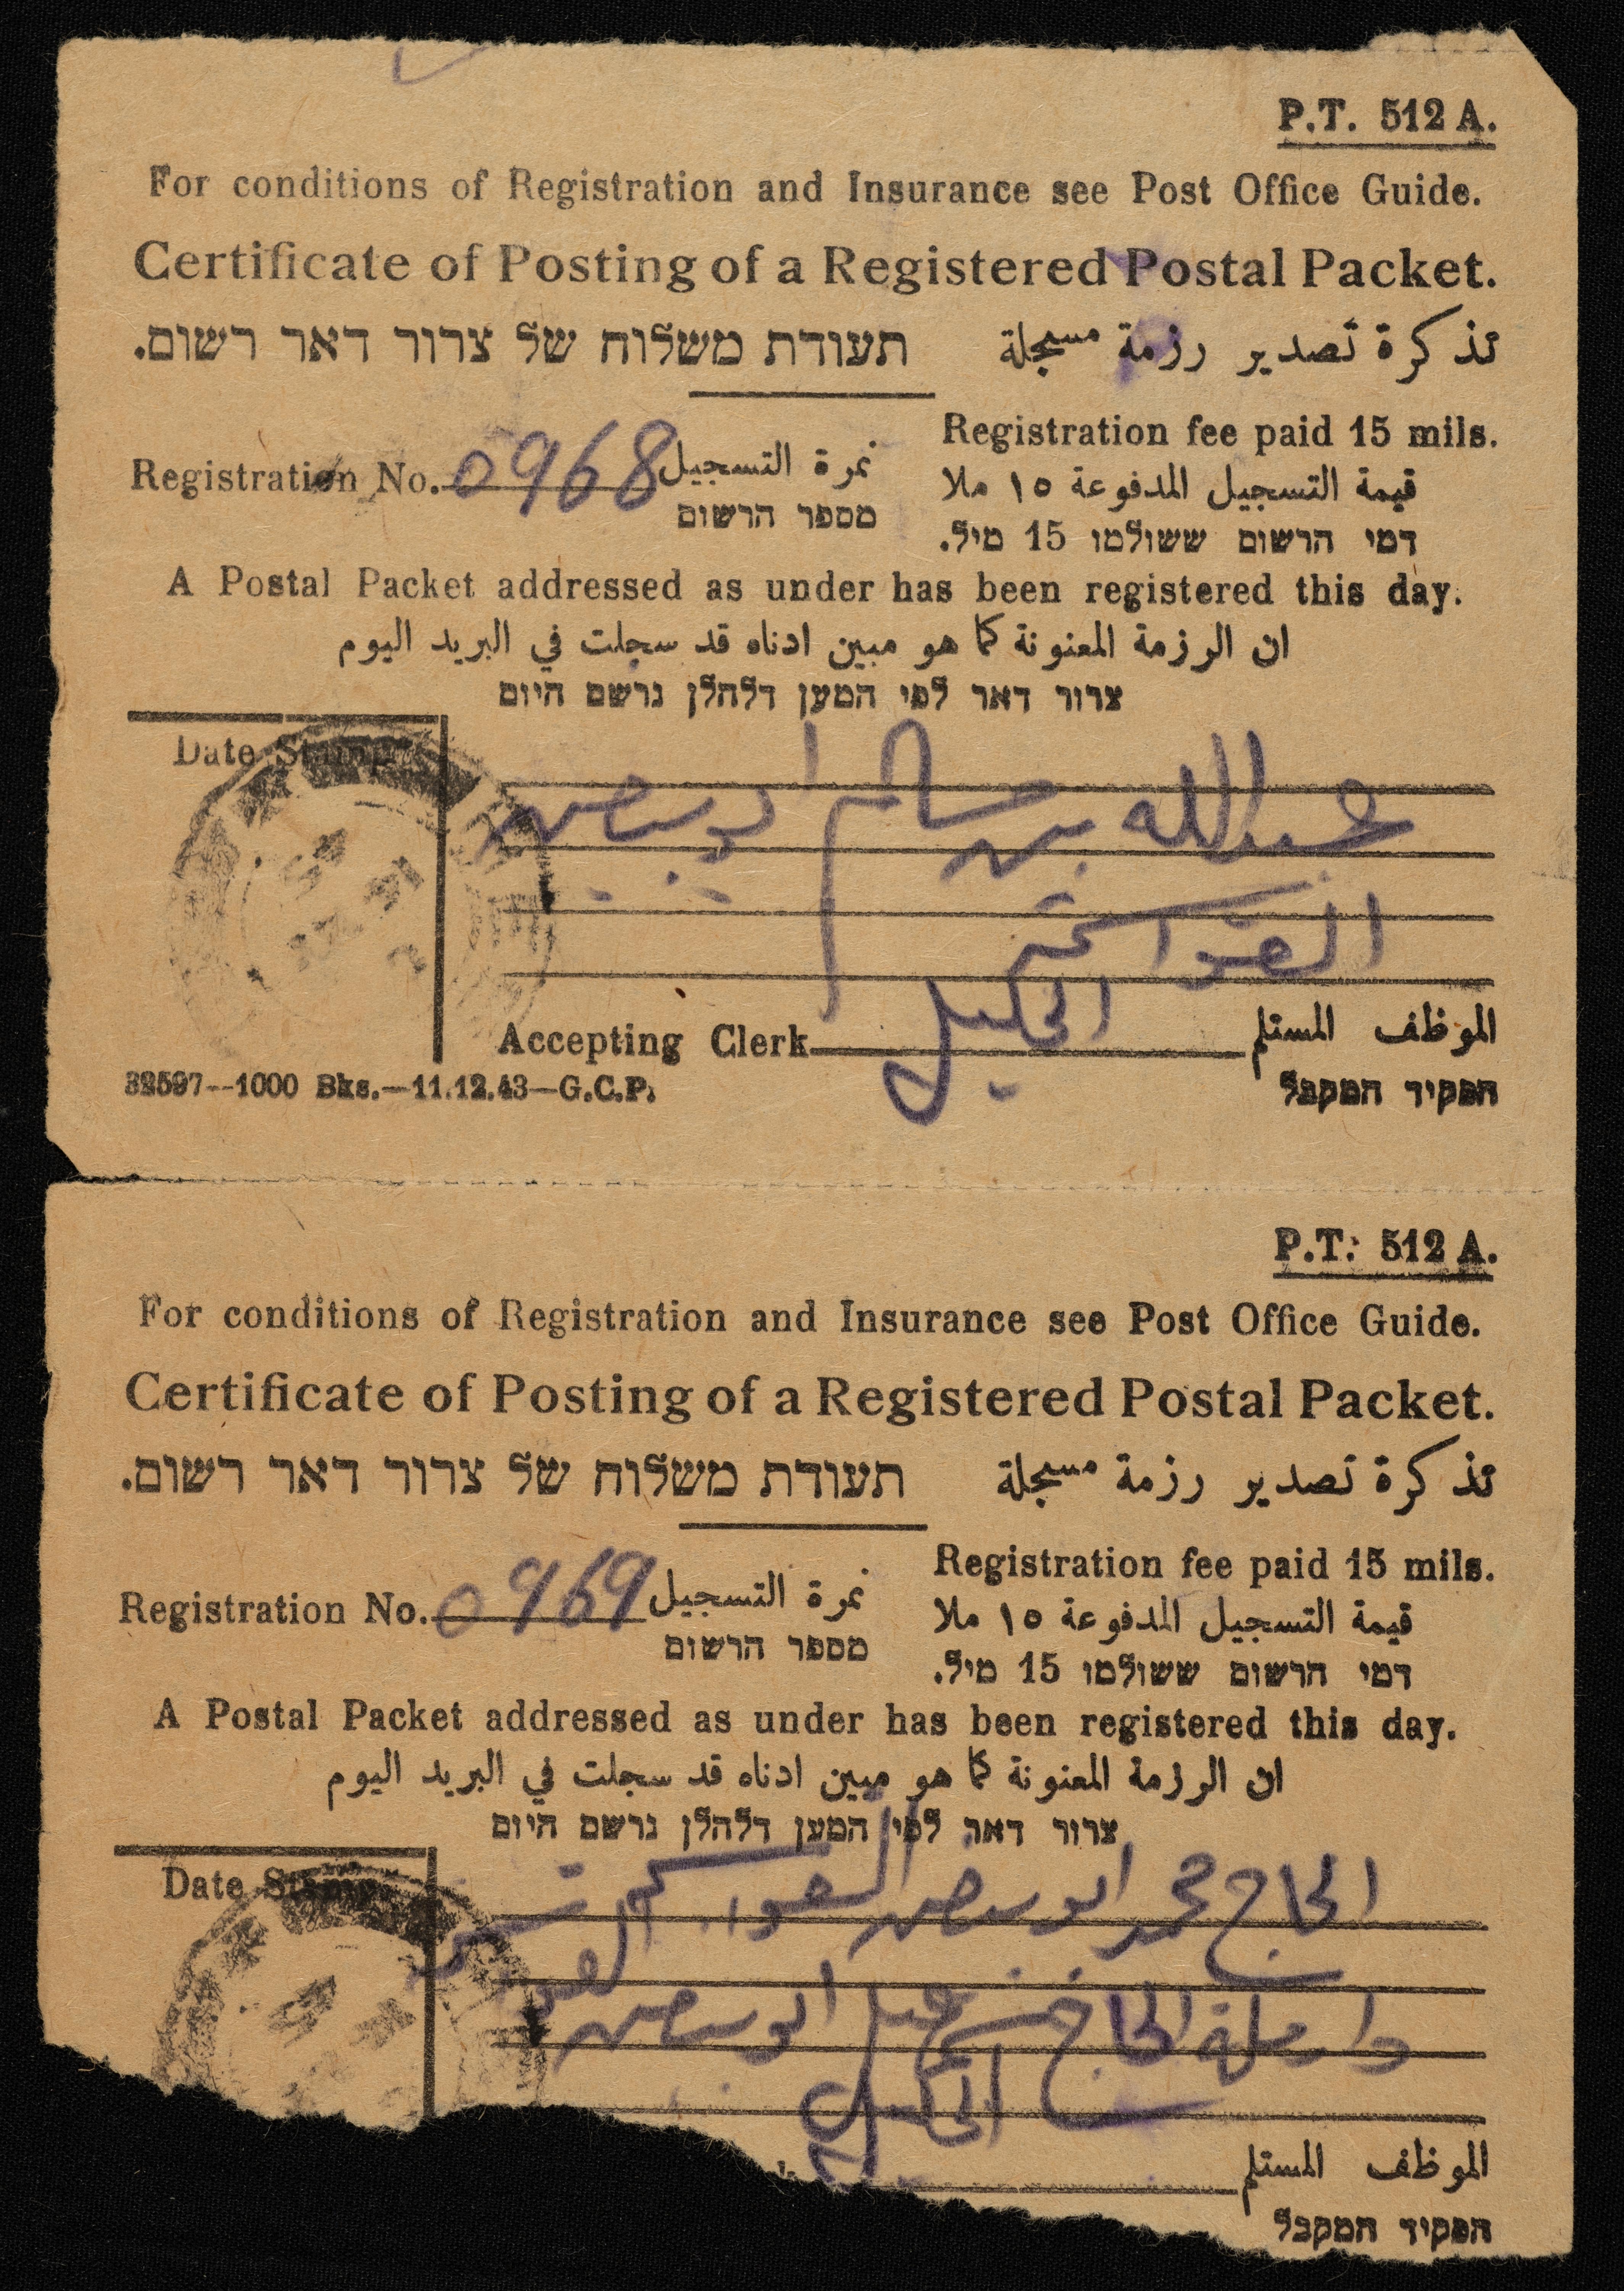 P.T. 512 A.
For conditions of Registration and Insurance see Post Office Guide.
Certificate of Posting of a Registered Postal Packet.
תעודת משלוח של צרור דאר רשום. تذكرة تصدير رزمة مسجلة
Registration fee paid 15 mils.
Registration No. 0968 نمرة التسجيل
قيمة التسجيل المدفوعة ١٥ ملا
מספר הרשום
דמי הרשום ששולמו 15 מיל.
A Postal Packet addressed as under has been registered this day.
ان الرزمة المعنونة كما هو مبين ادناه قد سجلت في البريد اليوم
צרור דאר לפי המען דלהלן נרשם היום
Date Stamp
عبدالله بن سالم ابو
الخليل
Accepting Clerk الموظف المستلم
הפקיד המקבל
32597--1000 Bks.--11.12.43--G.C.P.
P.T. 512 A.
For conditions of Registration and Insurance see Post Office Guide.
Certificate of Posting of a Registered Postal Packet.
תעודת משלוח של צרור דאר רשום. تذكرة تصدير رزمة مسجلة
Registration fee paid 15 mils.
Registration No. 0969 نمرة التسجيل
قيمة التسجيل المدفوعة ١٥ ملا
מספר הרשום
דמי הרשום ששולמו 15 מיל.
A Postal Packet addressed as under has been registered this day.
ان الرزمة المعنونة كما هو مبين ادناه قد سجلت في البريد اليوم
צרור דאר לפי המען דלהלן נרשם היום
Date Stamp
الحاج محمد ابو
الحاج ابو
الخليل
الموظف المستلم
הפקיד המקבל